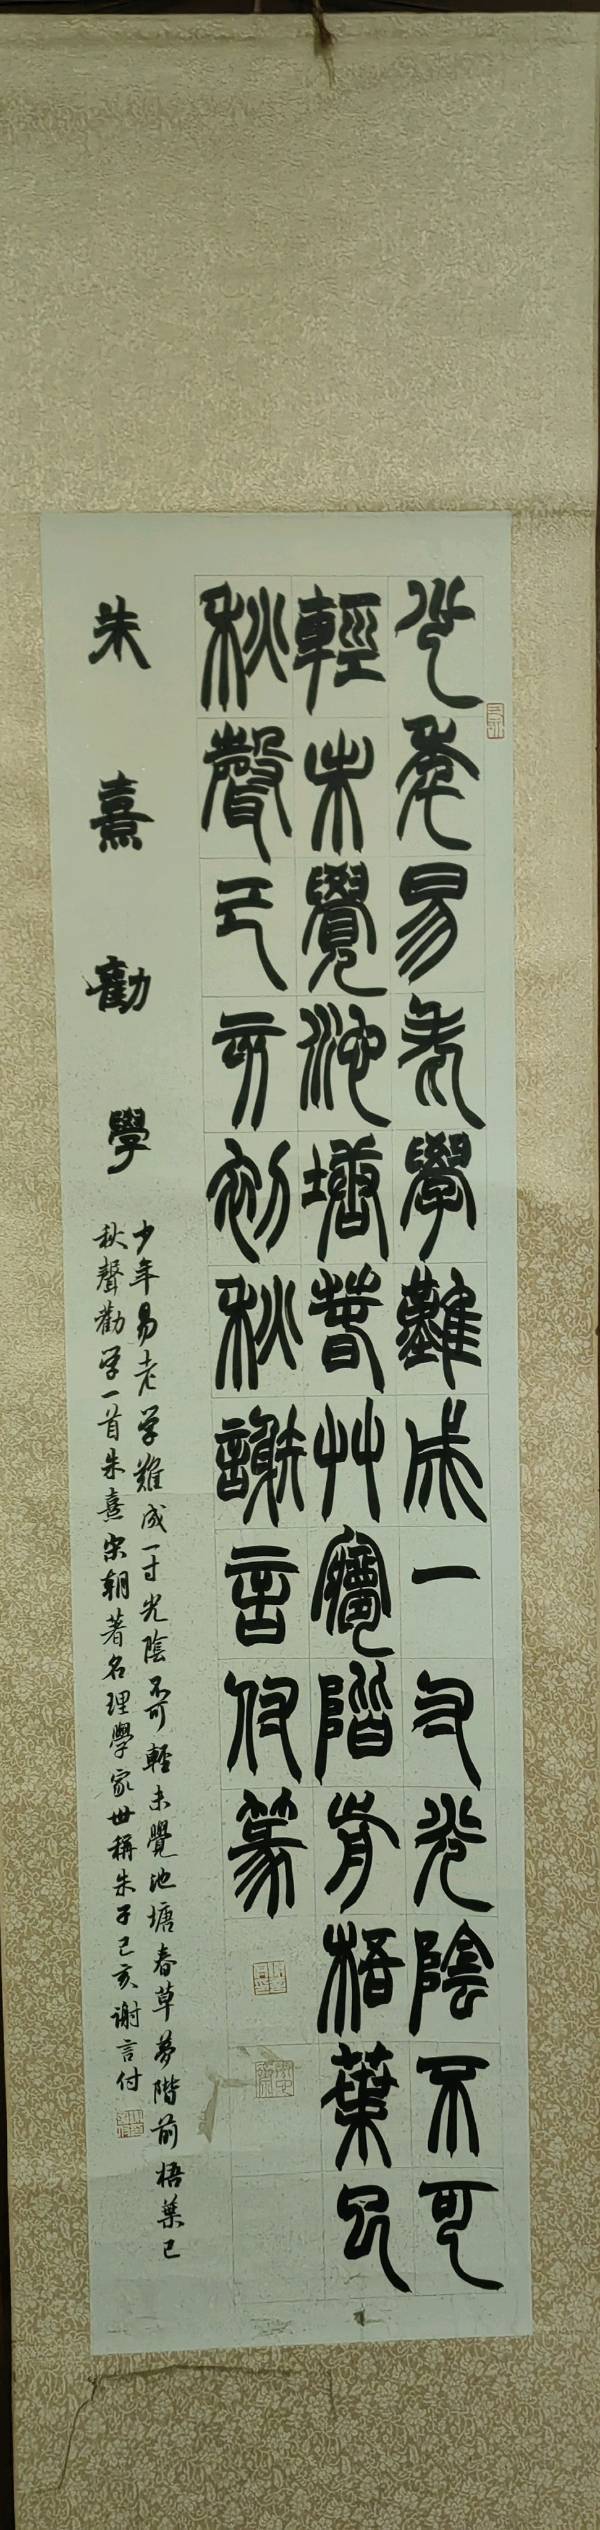 少年易老學難成一寸光陰不可
輕未覺池塘春草夢階前梧葉已
秋聲己亥初秋謝言付篆
朱熹勸學
少年易老学難成一寸光陰不可輕未覺池塘春草夢階前梧葉已
秋聲勸学一首朱熹宋朝著名理學家世稱朱子己亥謝言付